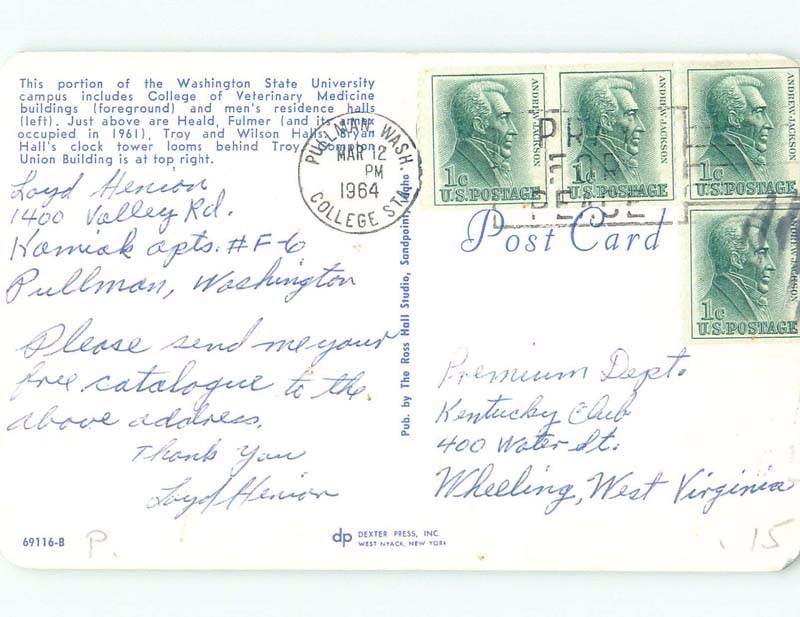 This portion of the Washington State University
campus includes College of Veterinary Medicine
buildings (foreground) and men's residence halls
(left). Just above are Heald, Fulmer (and its annex
occupied in 1961), Troy and Wilson Halls. Bryan
Hall's clock tower looms behind Troy. Compton
Union Building is at top right.
Loyd Henion
1400 Valley Rd.
Kamiak Apts. #F-6
Pullman, Washington
Please send me your
free catalogue to the
above address.
Thank You
Loyd Henion
69116-B
P.
PULLMAN, WASH.
MAR 12
PM
1964
COLLEGE STA.
Pub. by The Ross Hall Studio, Sandpoint, Idaho
dp DEXTER PRESS, INC.
WEST NYACK, NEW YORK
ANDREW JACKSON
1c
U.S. POSTAGE
ANDREW JACKSON
1c
U.S. POSTAGE
ANDREW JACKSON
U.S. POSTAGE
ANDREW JACKSON
1c
U.S. POSTAGE
PRAY
FOR
PEACE
Post Card
Premium Dept.
Kentucky Club
400 Water St.
Wheeling, West Virginia
.15